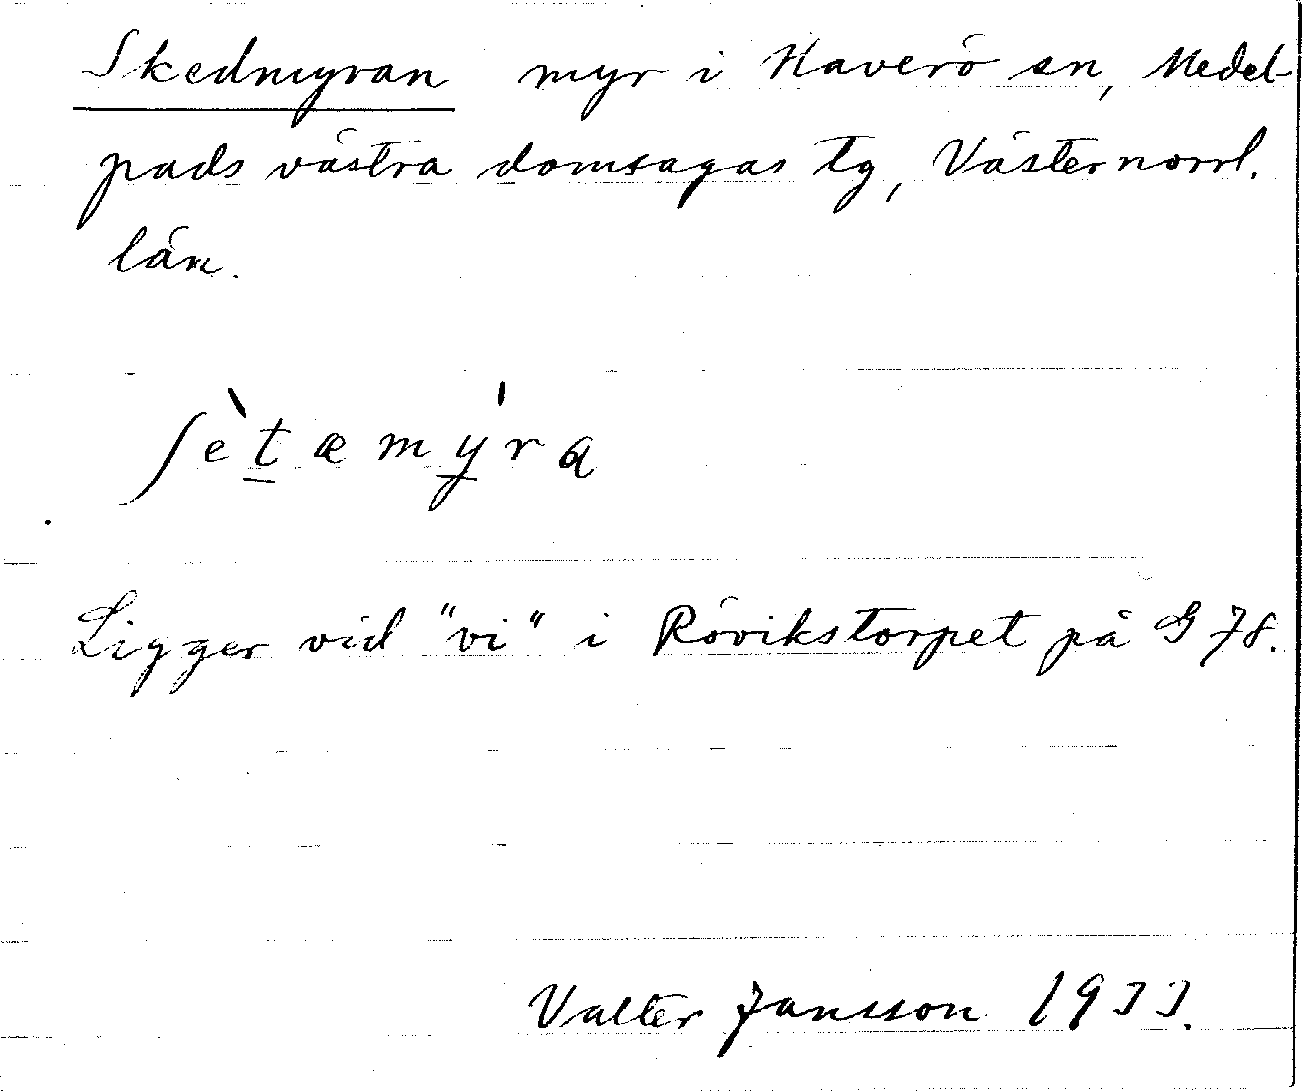 Skedmyran myr i Haverö sn, Medel-
pads västra domsagas tg, Västernorrl.
län.
ʃètæmýra
Ligger vid "vi" i Rövikstorpet på G 78.
Valter Jansson 1933.